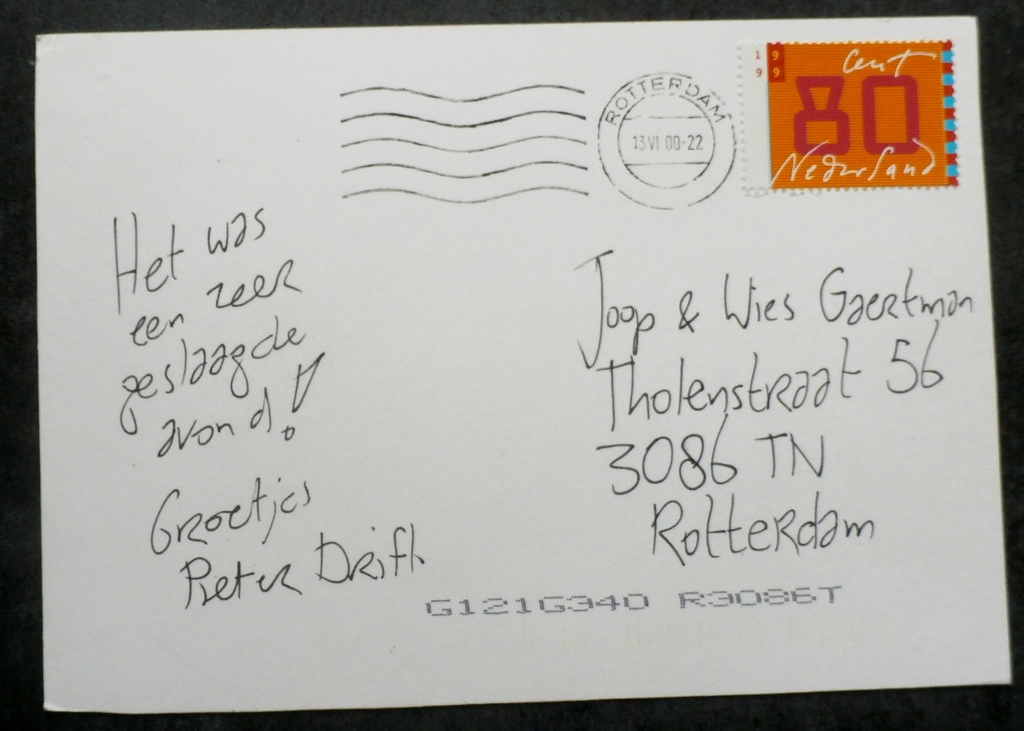 ROTTERDAM
13 VI 00-22
19
99
cent
80
Nederland
Het was
een zeer
geslaagde
avond!
Groetjes
Pieter Drift
Joop & Wies Gaertman
Tholenstraat 56
3086 TN
Rotterdam
G121G340 R3086T